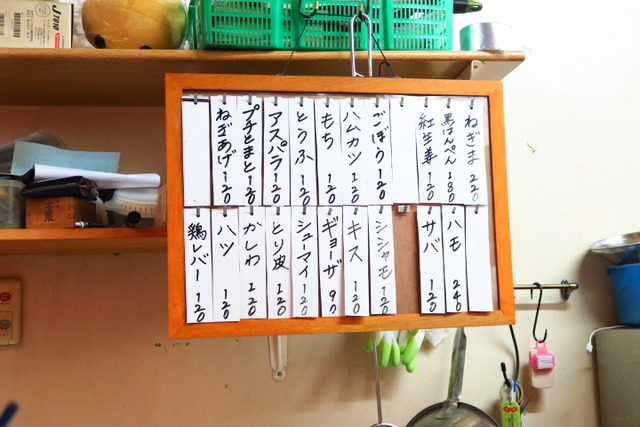 ねぎま 220
黒はんぺん 180
紅生姜 120
ごぼう 120
ハムカツ 120
もち 120
とうふ 120
アスパラ 120
プチとまと 120
ねぎあげ 120
ハモ 240
サバ 120
シシャモ 120
キス 120
ギョーザ 90
シューマイ 120
とり皮 120
かしわ 220
ハツ 120
鶏レバー 120